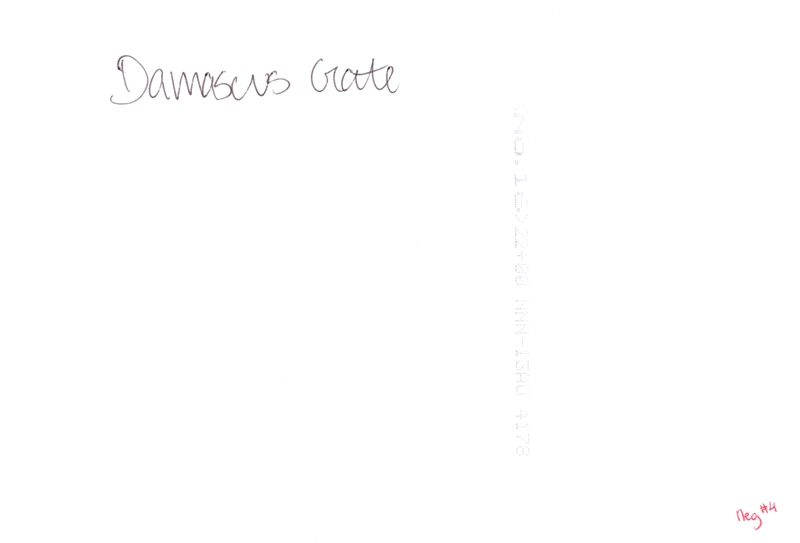 Damascus Gate
<No.15>22+00 NNN-13AU 4178
neg #4